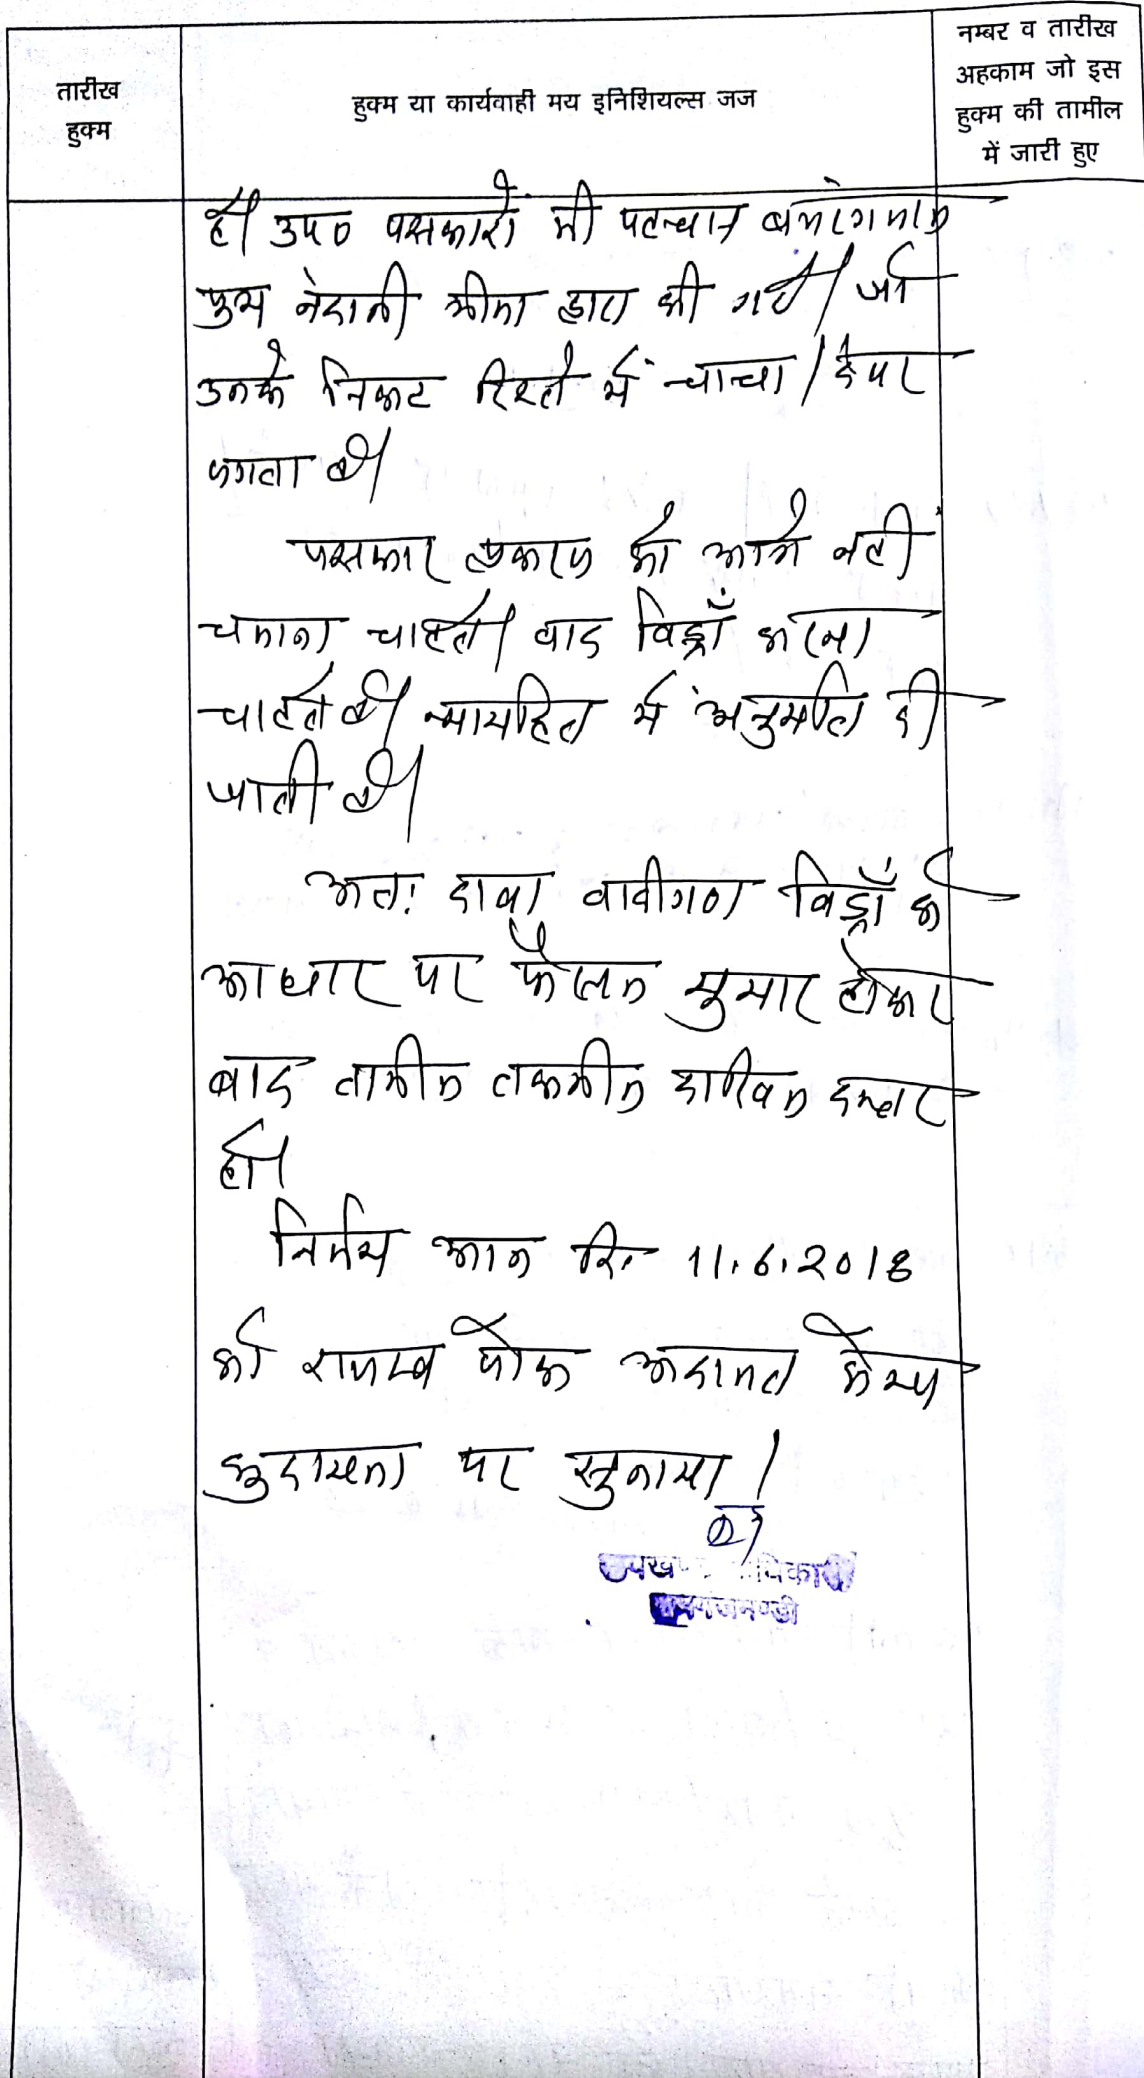 तारीख
हुक्म
हुक्म या कार्यवाही मय इनिशियल्स जज
नम्बर व तारीख
अहकाम जो इस
हुक्म की तामील
में जारी हुए
है। उप० पक्षकारों की पहचान
पुत्र भीमा द्वारा की गई। जो
उनके निकट रिश्ते में चाचा / देवर
लगता है।
पक्षकार प्रकरण को आगे नहीं
चलाना चाहते। वाद विड्रॉ करना
चाहते है। न्यायहित में अनुमति दी
जाती है।
अतः दावा वादीगण विड्रॉ के
आधार पर फैसल सुमार होकर
बाद तामील तकमील दाखिल दफ्तर
हो।
निर्णय आज दि. 11.6.2018
को राजस्व लोक अदालत केम्प
पर सुनाया।
उपखण्ड अधिकारी
रामगंजमण्डी